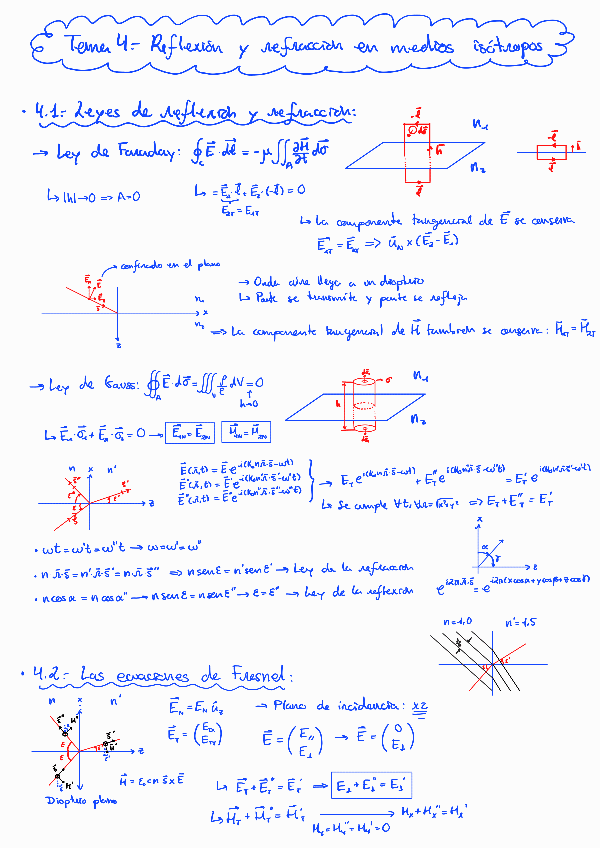 Tema 4.- Reflexión y refracción en medios isótropos
· 4.1.- Leyes de reflexión y refracción:
→ Ley de Faraday: ∮c E⃗·dl⃗ = -μ∬A ∂H⃗/∂t dσ⃗
↳ |h|→0 => A=0
↳ = E⃗₁·l⃗ + E⃗₂·(-l⃗) = 0
E₂T = E₁T
-l⃗
dσ⃗
h⃗
l⃗
n₁
n₂
-l⃗
h
l⃗
↳ La componente tangencial de E⃗ se conserva
E⃗₁T = E⃗₂T => u⃗N × (E⃗₂-E⃗₁)
confinado en el plano
n₁
x
n₂
z
→ Onda que llega a un dioptrio
↳ Parte se transmite y parte se refleja
=> La componente tangencial de H⃗ también se conserva: H⃗₁T = H⃗₂T
→ Ley de Gauss: ∯A E⃗·dσ⃗ = ∭v ρ/ε dV = 0
h→0
↳ E⃗₁·σ⃗₁ + E⃗₂·σ⃗₂ = 0 → E⃗₁N = E⃗₂N H⃗₁N = H⃗₂N
h
σ
n₁
n₂
n x n'
z
E⃗(r⃗,t) = E⃗ e^i(k₀n r⃗·s⃗-ωt)
E⃗'(r⃗,t) = E⃗' e^i(k₀n' r⃗·s⃗'-ω't)
E⃗''(r⃗,t) = E⃗'' e^i(k₀n'' r⃗·s⃗''-ω''t)
→ E_T e^i(k₀n r⃗·s⃗-ωt) + E_T'' e^i(k₀n'' r⃗·s⃗''-ω''t) = E_T' e^i(k₀n' r⃗·s⃗'-ω't)
↳ Se cumple ∀t, => E_T + E_T'' = E_T'
· ωt = ω't = ω''t → ω=ω'=ω''
· n r⃗·s⃗ = n' r⃗·s⃗' = n r⃗·s⃗'' => n sen ε = n' sen ε' → Ley de la refracción
· n cos α = n cos α'' → n sen ε = n sen ε'' → ε = ε'' → Ley de la reflexión
x
α
γ
z
e^i2πr⃗·s⃗ = e^i2π(x cos α + y cos β + z cos γ)
n=1,0 n'=1,5
· 4.2.- Las ecuaciones de Fresnel:
n x n'
z
Dioptrio plano
E⃗N = EN ûz
→ Plano de incidencia: xz
E⃗T = (ETx ETy)
E⃗ = (E∥ E⊥) → E⃗ = (0 E⊥)
H⃗ = ε₀cn s⃗ × E⃗
↳ E⃗T + E⃗T'' = E⃗T' => E⊥ + E⊥'' = E⊥'
↳ H⃗T + H⃗T'' = H⃗T' → Hx + Hx'' = Hx'
Hy = Hy'' = Hy' = 0